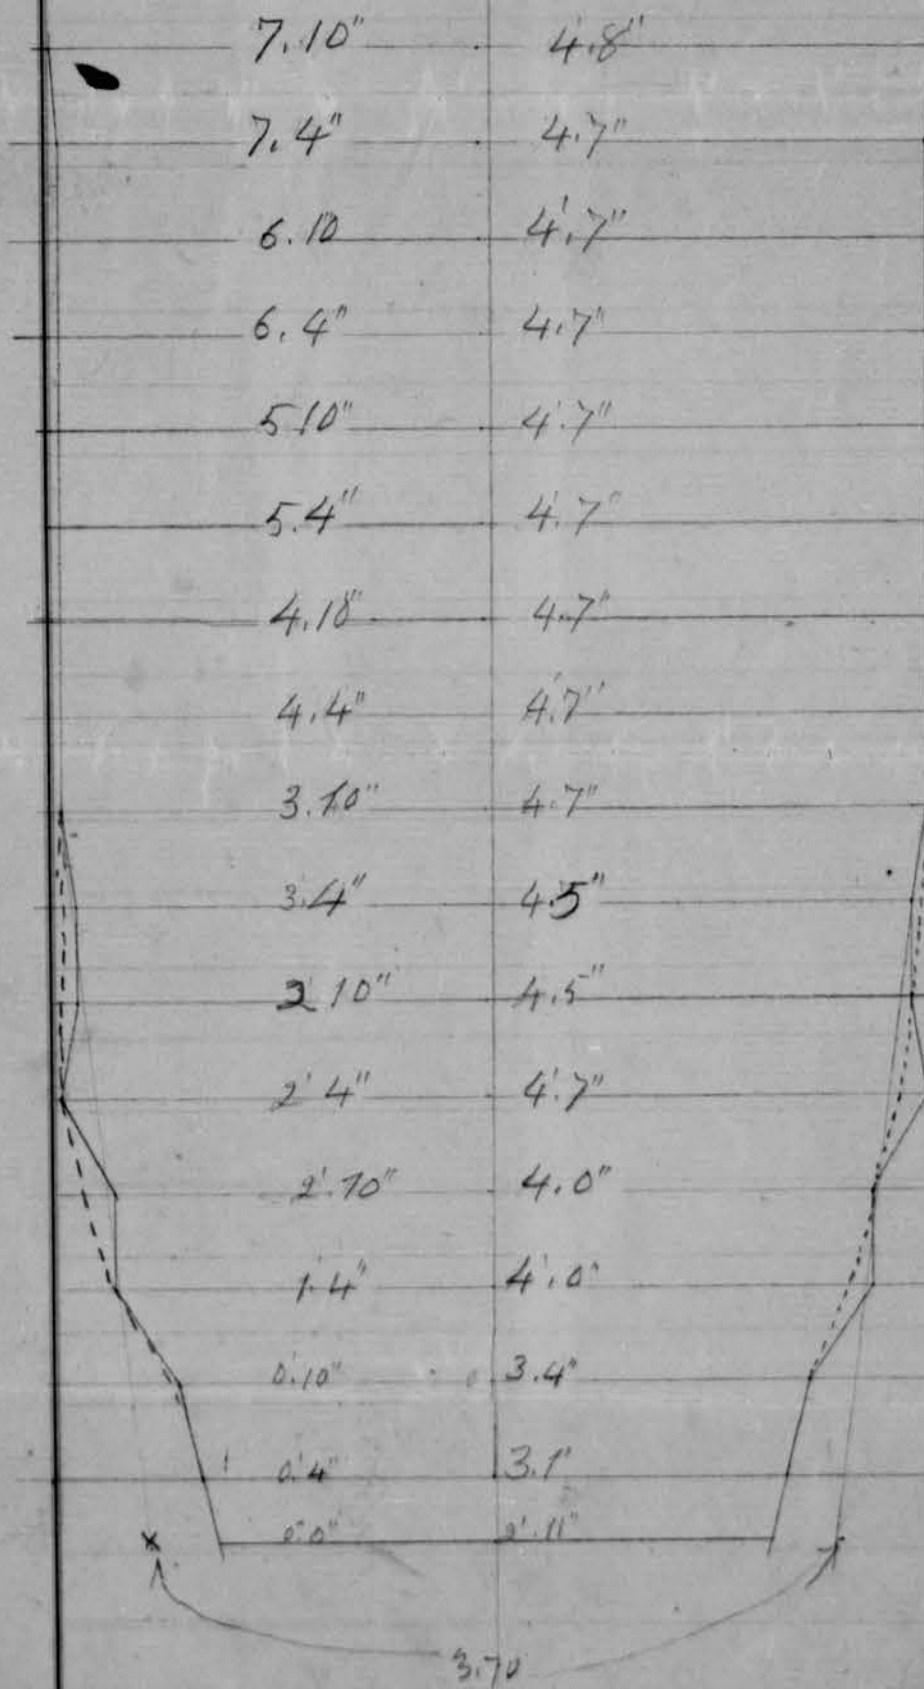 7.10" 4'.8"
7.4" 4.7"
6.10 4'.7"
6.4" 4.7"
5 10" 4'.7"
5.4" 4'.7"
4.10" 4.7"
4.4" 4'.7"
3.10" 4.7"
3.4" 4.5"
2 10" 4.5"
2' 4" 4'.7"
2'.10" 4.0"
1.4" 4'.0"
0'.10" 3.4"
0'.4" 3.1'
0'.0" 2'.11"
3.10